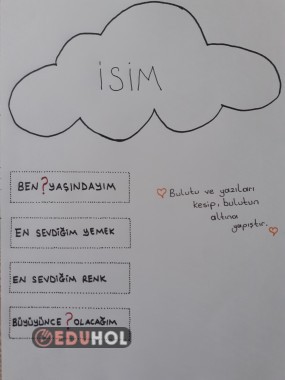 İSİM
BEN ? YAŞINDAYIM
EN SEVDİĞİM YEMEK
EN SEVDİĞİM RENK
BÜYÜYÜNCE ? OLACAĞIM
Bulutu ve yazıları
kesip, bulutun
altına
yapıştır.
EDUHOL